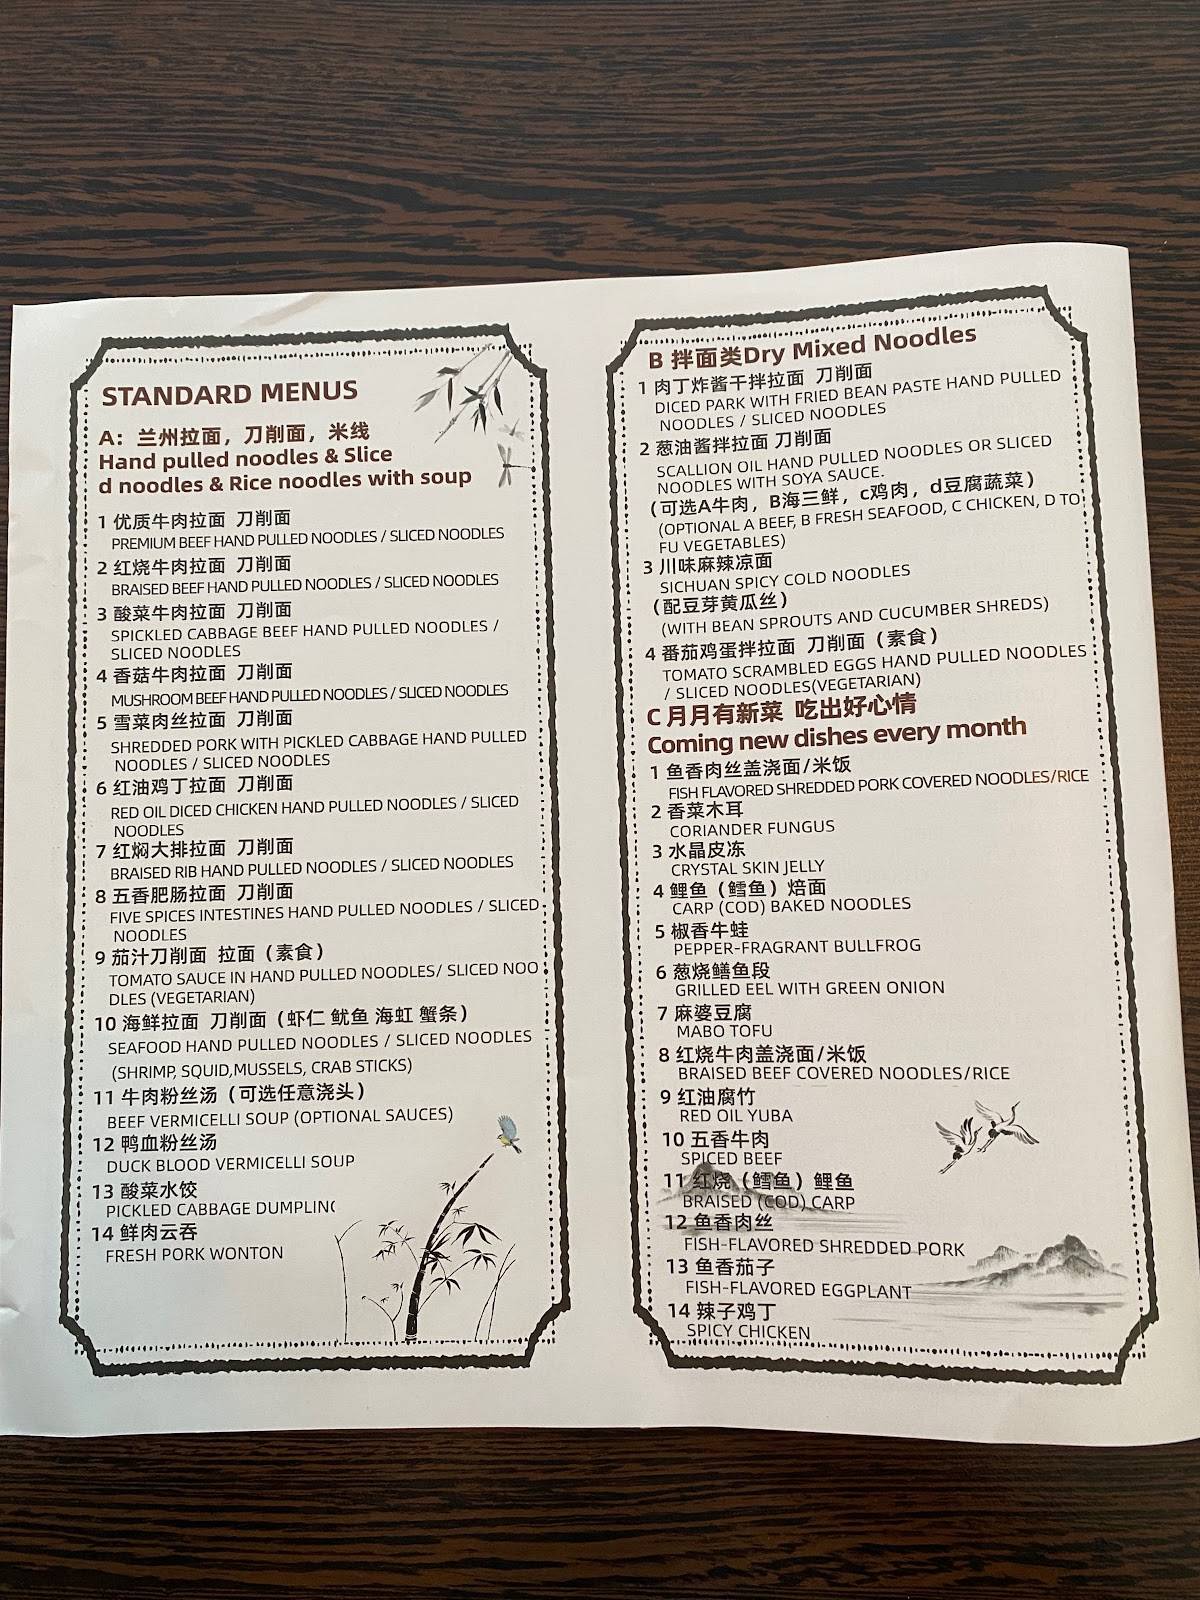 STANDARD MENUS
A：兰州拉面，刀削面，米线
Hand pulled noodles & Slice
d noodles & Rice noodles with soup
1 优质牛肉拉面 刀削面
PREMIUM BEEF HAND PULLED NOODLES / SLICED NOODLES
2 红烧牛肉拉面 刀削面
BRAISED BEEF HAND PULLED NOODLES / SLICED NOODLES
3 酸菜牛肉拉面 刀削面
SPICKLED CABBAGE BEEF HAND PULLED NOODLES /
SLICED NOODLES
4 香菇牛肉拉面 刀削面
MUSHROOM BEEF HAND PULLED NOODLES / SLICED NOODLES
5 雪菜肉丝拉面 刀削面
SHREDDED PORK WITH PICKLED CABBAGE HAND PULLED
NOODLES / SLICED NOODLES
6 红油鸡丁拉面 刀削面
RED OIL DICED CHICKEN HAND PULLED NOODLES / SLICED
NOODLES
7 红焖大排拉面 刀削面
BRAISED RIB HAND PULLED NOODLES / SLICED NOODLES
8 五香肥肠拉面 刀削面
FIVE SPICES INTESTINES HAND PULLED NOODLES / SLICED
NOODLES
9 茄汁刀削面 拉面（素食）
TOMATO SAUCE IN HAND PULLED NOODLES/ SLICED NOO
DLES (VEGETARIAN)
10 海鲜拉面 刀削面（虾仁 鱿鱼 海虹 蟹条）
SEAFOOD HAND PULLED NOODLES / SLICED NOODLES
(SHRIMP, SQUID,MUSSELS, CRAB STICKS)
11 牛肉粉丝汤（可选任意浇头）
BEEF VERMICELLI SOUP (OPTIONAL SAUCES)
12 鸭血粉丝汤
DUCK BLOOD VERMICELLI SOUP
13 酸菜水饺
PICKLED CABBAGE DUMPLING
14 鲜肉云吞
FRESH PORK WONTON
B 拌面类Dry Mixed Noodles
1 肉丁炸酱干拌拉面 刀削面
DICED PARK WITH FRIED BEAN PASTE HAND PULLED
NOODLES / SLICED NOODLES
2 葱油酱拌拉面 刀削面
SCALLION OIL HAND PULLED NOODLES OR SLICED
NOODLES WITH SOYA SAUCE.
（可选A牛肉，B海三鲜，c鸡肉，d豆腐蔬菜）
(OPTIONAL A BEEF, B FRESH SEAFOOD, C CHICKEN, D TO
FU VEGETABLES)
3 川味麻辣凉面
SICHUAN SPICY COLD NOODLES
（配豆芽黄瓜丝）
(WITH BEAN SPROUTS AND CUCUMBER SHREDS)
4 番茄鸡蛋拌拉面 刀削面（素食）
TOMATO SCRAMBLED EGGS HAND PULLED NOODLES
/ SLICED NOODLES(VEGETARIAN)
C 月月有新菜 吃出好心情
Coming new dishes every month
1 鱼香肉丝盖浇面/米饭
FISH FLAVORED SHREDDED PORK COVERED NOODLES/RICE
2 香菜木耳
CORIANDER FUNGUS
3 水晶皮冻
CRYSTAL SKIN JELLY
4 鲤鱼（鳕鱼）焙面
CARP (COD) BAKED NOODLES
5 椒香牛蛙
PEPPER-FRAGRANT BULLFROG
6 葱烧鳝鱼段
GRILLED EEL WITH GREEN ONION
7 麻婆豆腐
MABO TOFU
8 红烧牛肉盖浇面/米饭
BRAISED BEEF COVERED NOODLES/RICE
9 红油腐竹
RED OIL YUBA
10 五香牛肉
SPICED BEEF
11 红烧（鳕鱼）鲤鱼
BRAISED (COD) CARP
12 鱼香肉丝
FISH-FLAVORED SHREDDED PORK
13 鱼香茄子
FISH-FLAVORED EGGPLANT
14 辣子鸡丁
SPICY CHICKEN